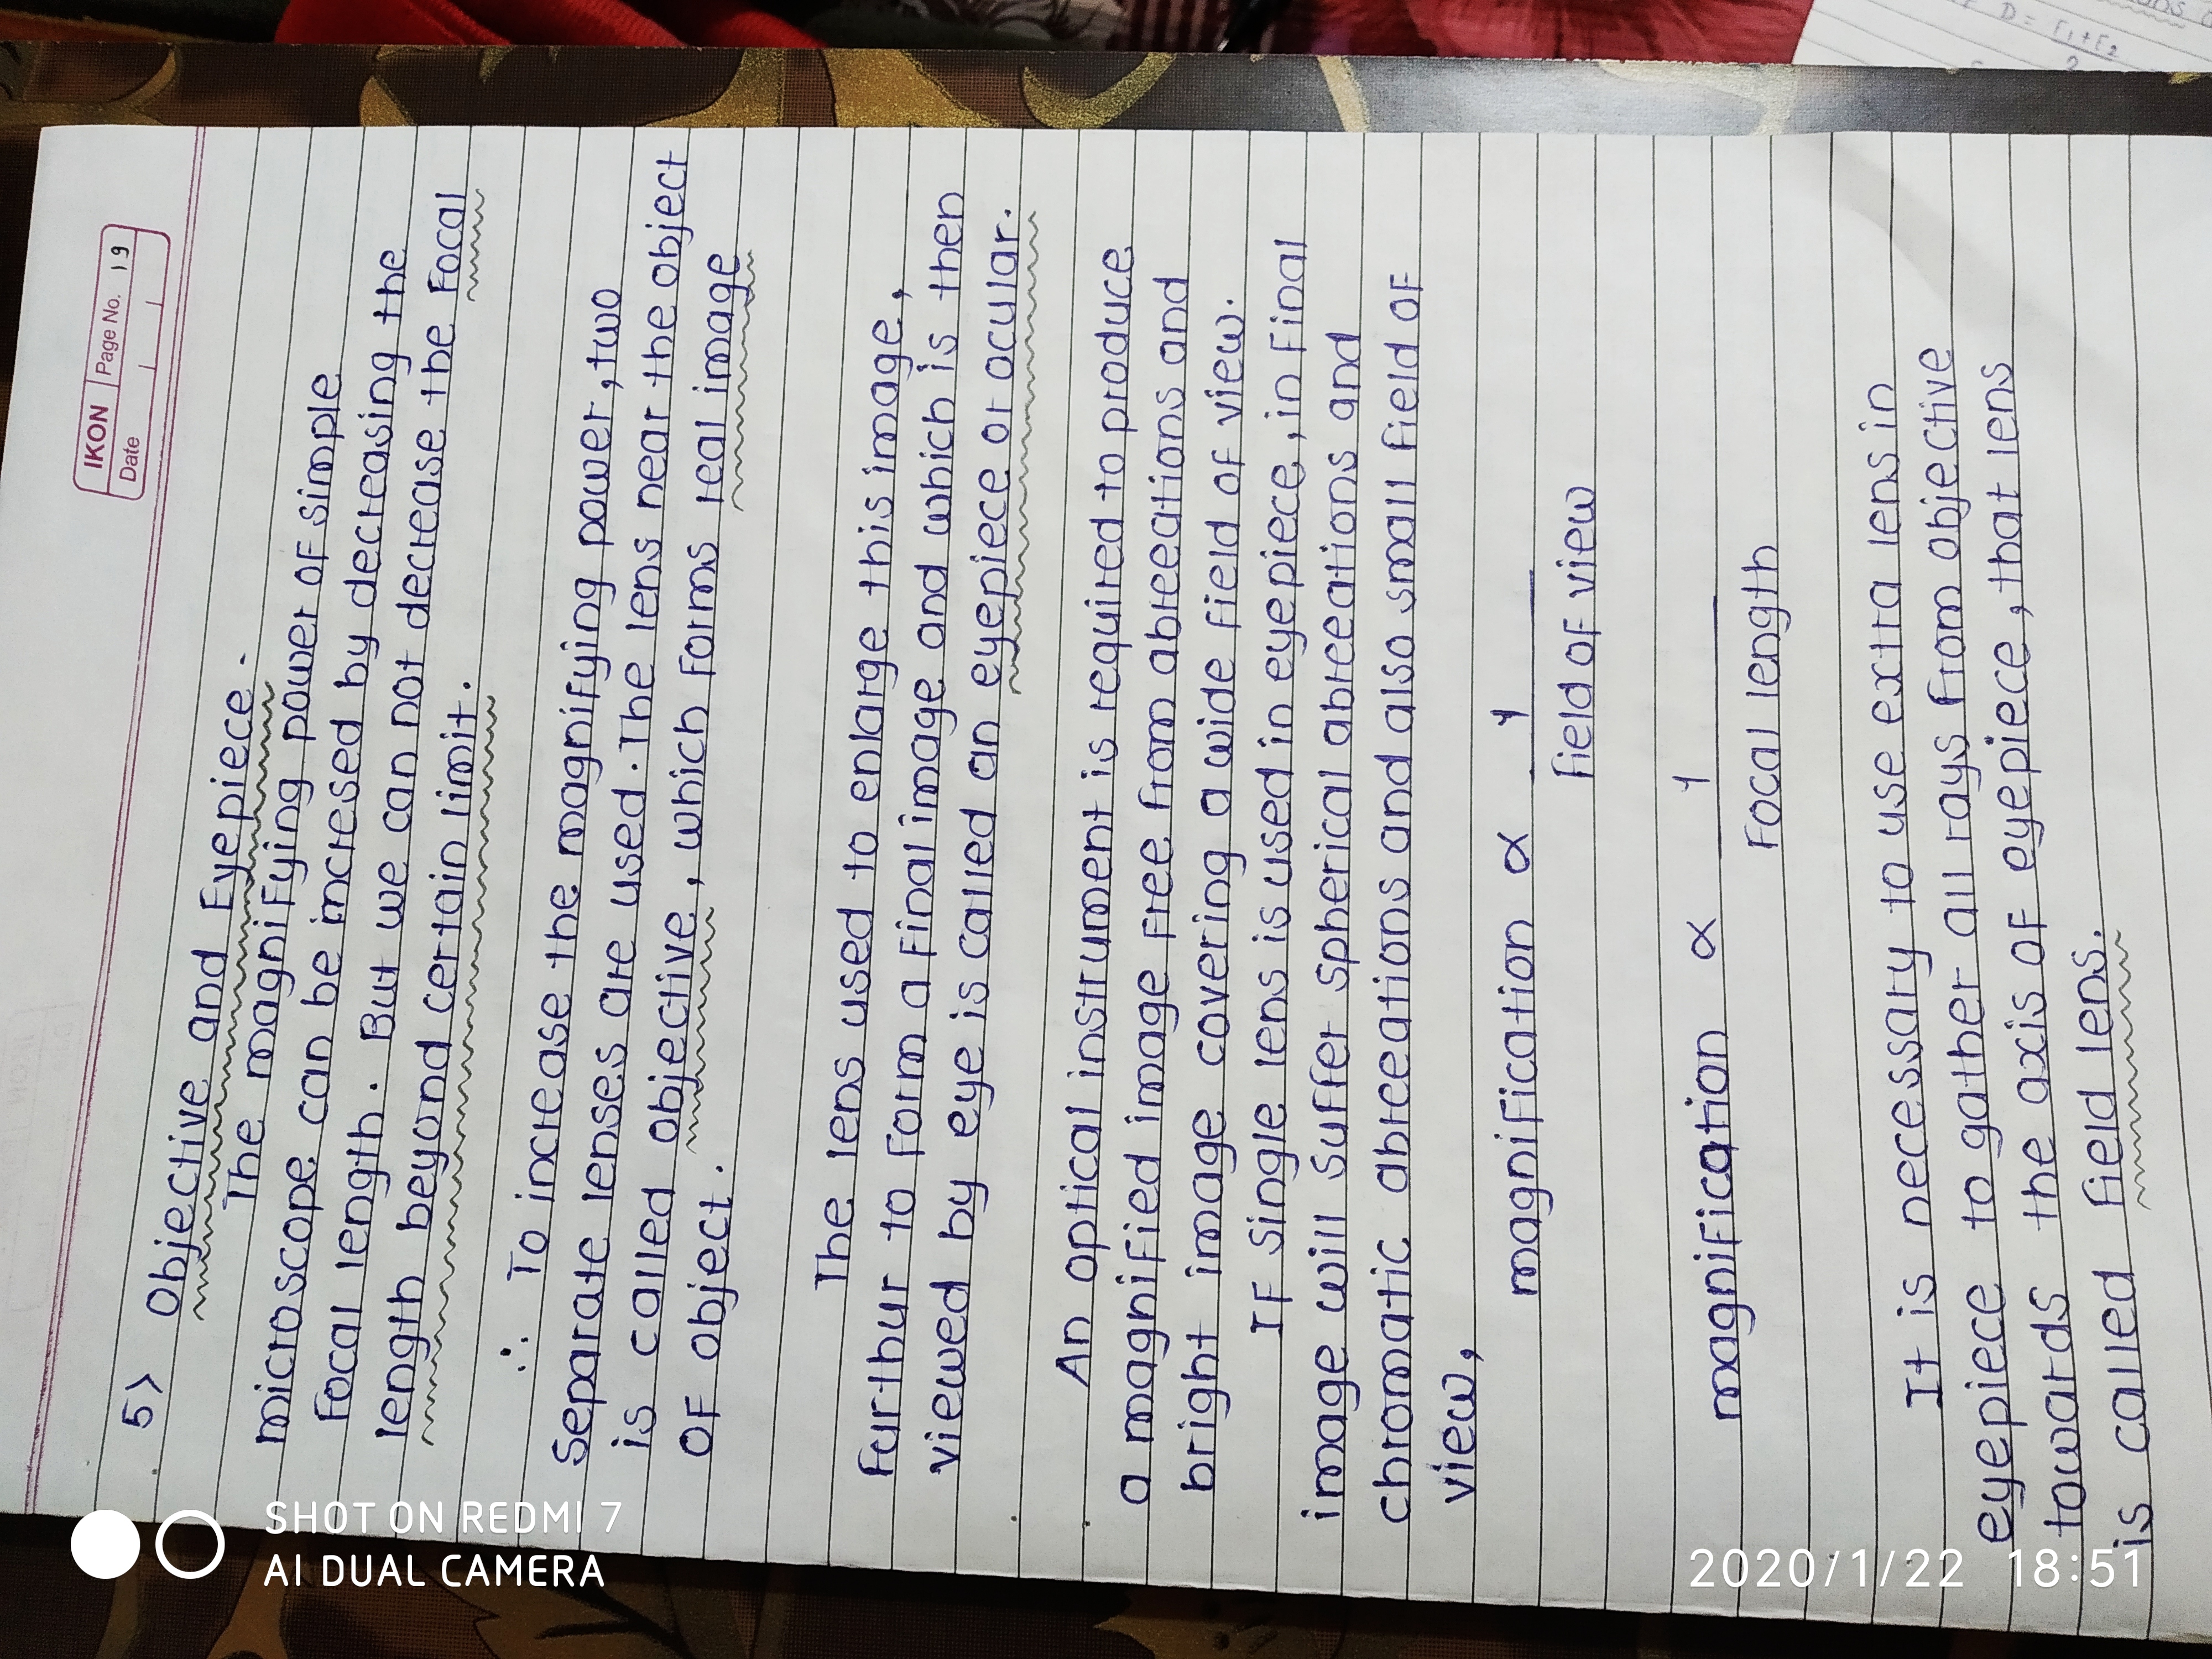 IKON Page No. 19
Date
5> Objective and Eyepiece.
The magnifying power of simple
microscope can be incresed by decreasing the
focal length. But we can not decrease the focal
length beyond certain limit.
∴ To increase the magnifying power, two
separate lenses are used. The lens near the object
is called objective, which forms real image
of object.
The lens used to enlarge this image,
furthur to form a final image and which is then
viewed by eye is called an eyepiece or ocular.
An optical instrument is required to produce
a magnified image free from abreeations and
bright image covering a wide field of view.
If single lens is used in eyepiece, in final
image will suffer spherical abreeations and
chromatic abreeations and also small field of
view,
magnification ∝ 1
field of view
magnification ∝ 1
focal length
It is necessary to use extra lens in
eyepiece to gather all rays from objective
towards the axis of eyepiece, that lens
is called field lens.
D = F1+F2
2
SHOT ON REDMI 7
AI DUAL CAMERA
2020/1/22 18:51